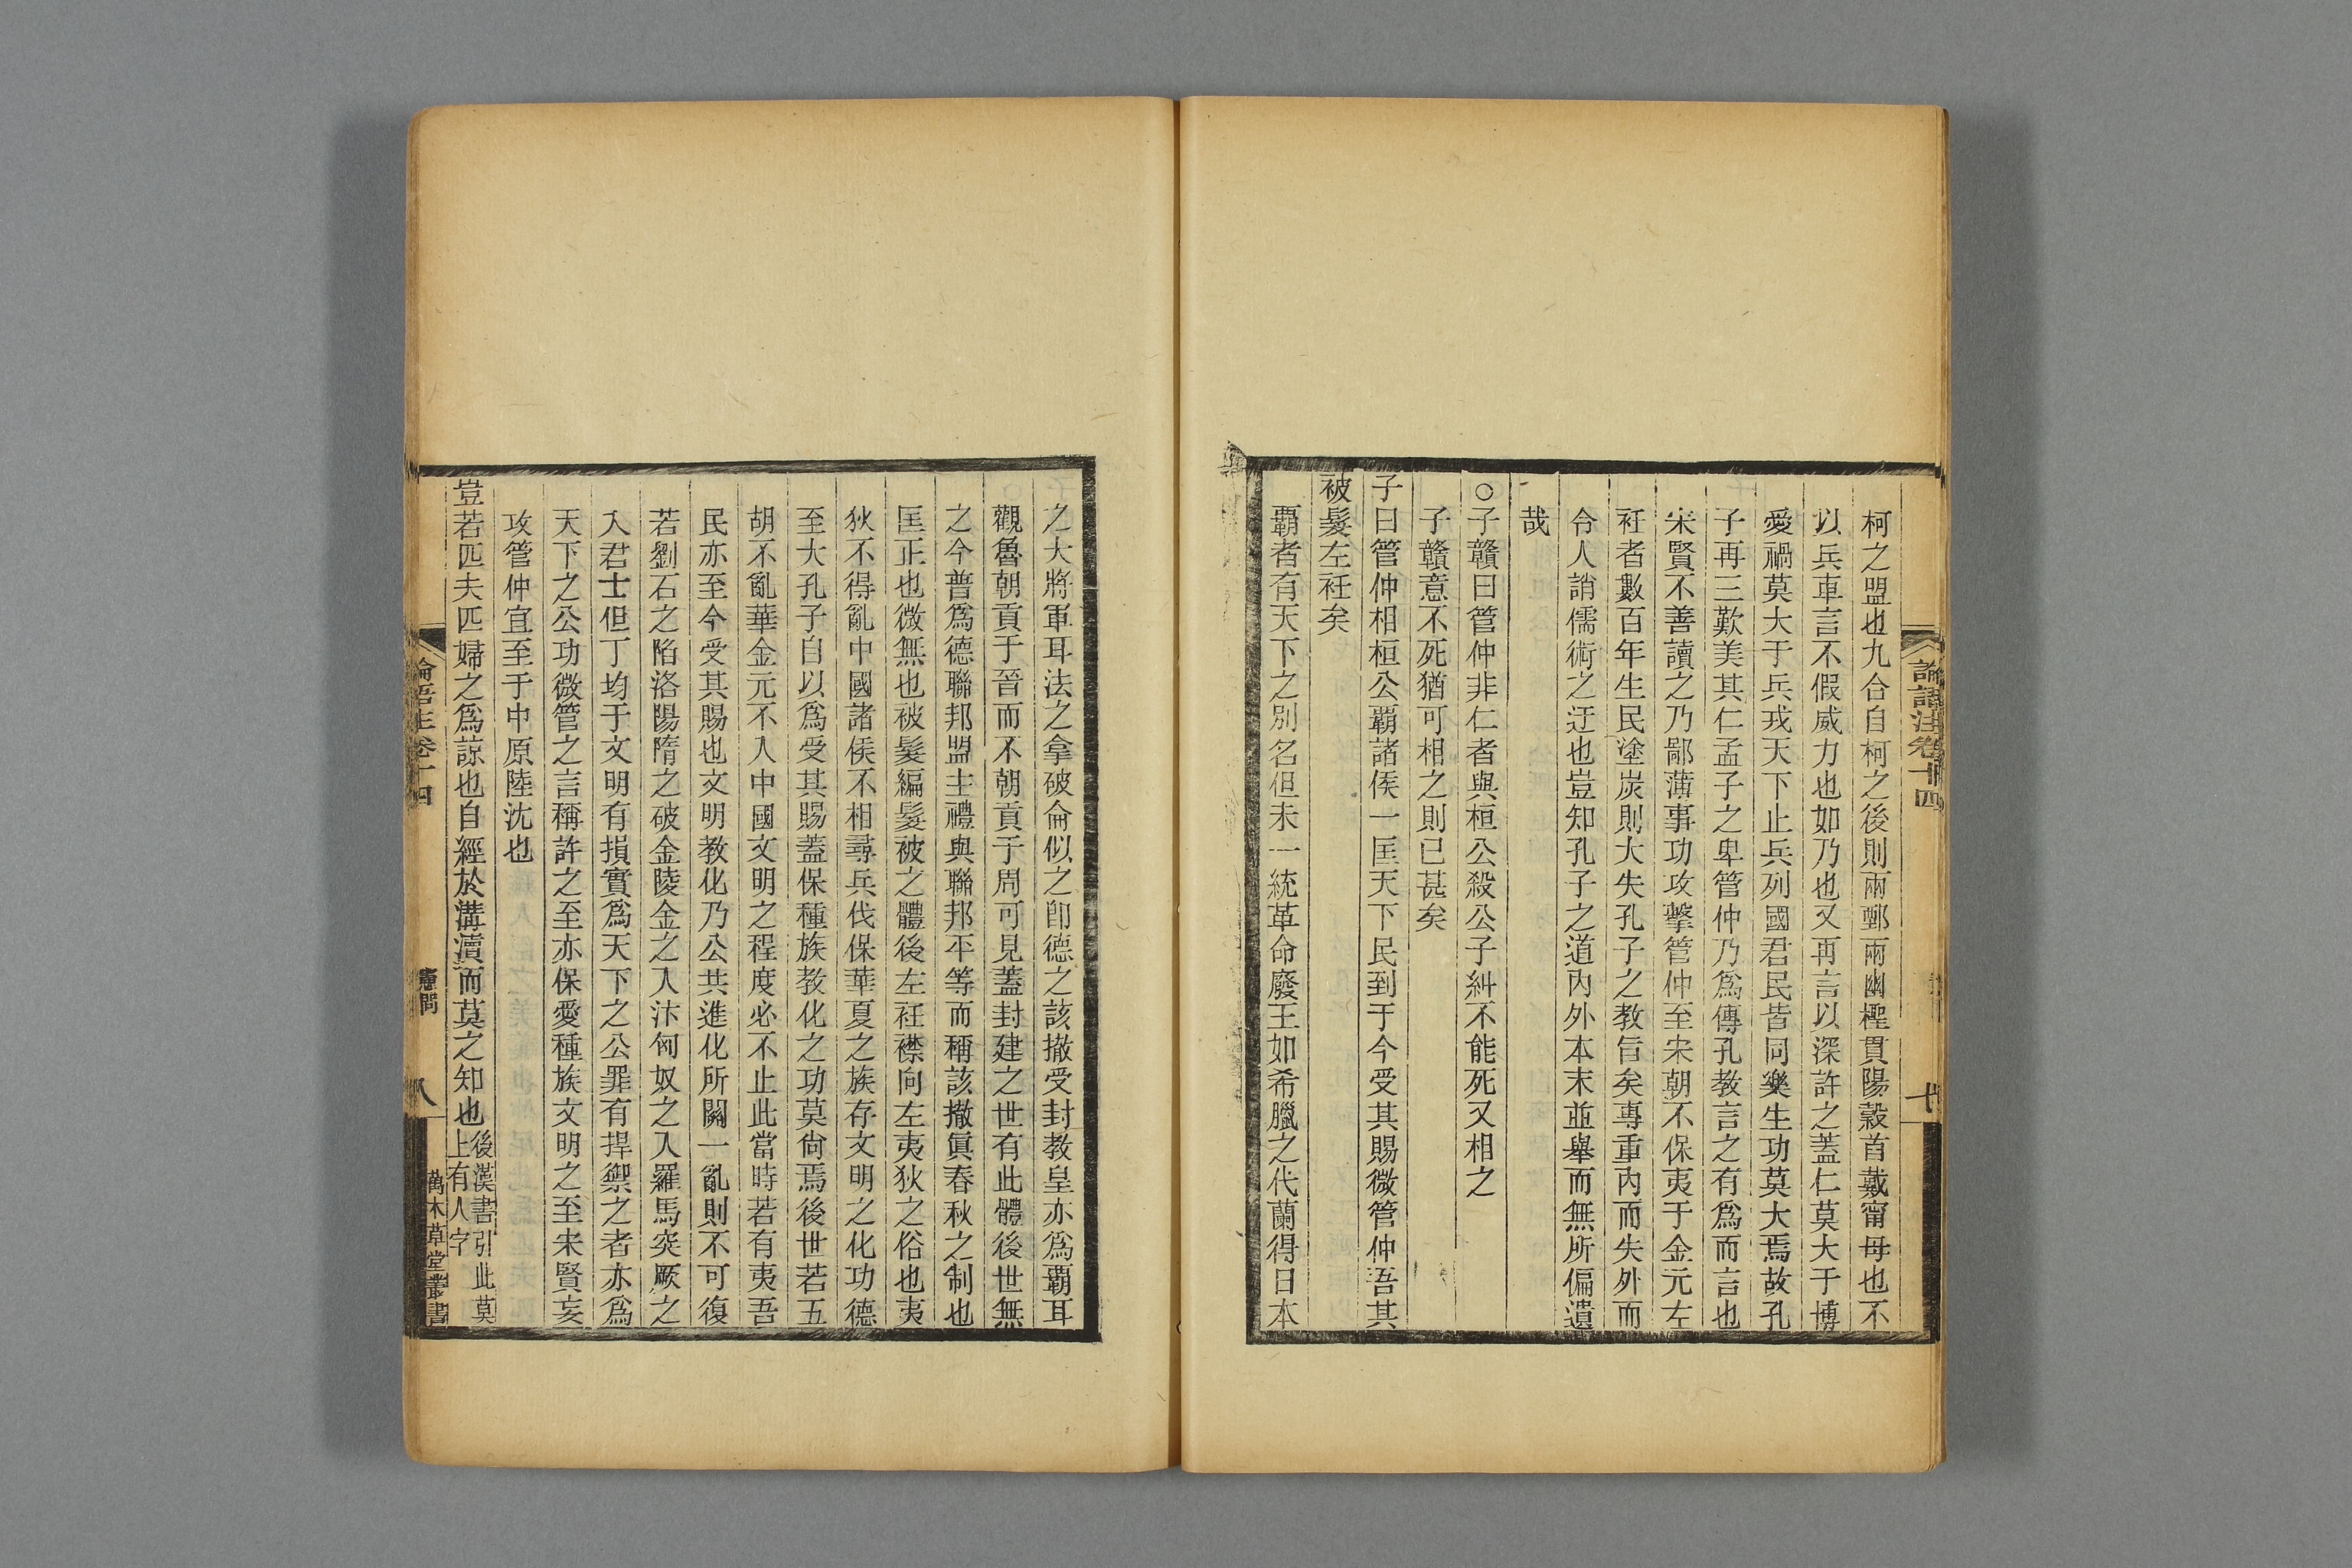 論語注卷十四
七
柯之盟也九合自柯之後則兩鄄兩幽檉貫陽榖首戴甯母也不
以兵車言不假威力也如乃也又再言以深許之蓋仁莫大于博
愛禍莫大于兵戎天下止兵列國君民皆同樂生功莫大焉故孔
子再三歎美其仁孟子之卑管仲乃爲傳孔教言之有爲而言也
宋賢不善讀之乃鄙薄事功攻擊管仲至宋朝不保夷于金元左
衽者數百年生民塗炭則大失孔子之教旨矣專重內而失外而
令人誚儒術之迂也豈知孔子之道內外本末並舉而無所偏遺
哉
○子贛曰管仲非仁者與桓公殺公子糾不能死又相之
子贛意不死猶可相之則已甚矣
子曰管仲相桓公霸諸侯一匡天下民到于今受其賜微管仲吾其
被髮左衽矣
霸者有天下之別名但未一統革命廢王如希臘之代蘭得日本
之大將軍耳法之拿破侖似之卽德之該撤受封教皇亦爲霸耳
觀魯朝貢于晉而不朝貢于周可見蓋封建之世有此體後世無
之今普爲德聯邦盟主禮與聯邦平等而稱該撤眞春秋之制也
匡正也微無也被髮編髮被之體後左衽襟向左夷狄之俗也夷
狄不得亂中國諸侯不相尋兵伐保華夏之族存文明之化功德
至大孔子自以爲受其賜蓋保種族教化之功莫尙焉後世若五
胡不亂華金元不入中國文明之程度必不止此當時若有夷吾
民亦至今受其賜也文明教化乃公共進化所關一亂則不可復
若劉石之陷洛陽隋之破金陵金之入汴匈奴之入羅馬突厥之
入君士但丁均于文明有損實爲天下之公罪有捍禦之者亦爲
天下之公功微管之言稱許之至亦保愛種族文明之至宋賢妄
攻管仲宜至于中原陸沈也
豈若匹夫匹婦之爲諒也自經於溝瀆而莫之知也後漢書引此莫
上有人字
論語注卷十四
憲問
八
萬木草堂叢書